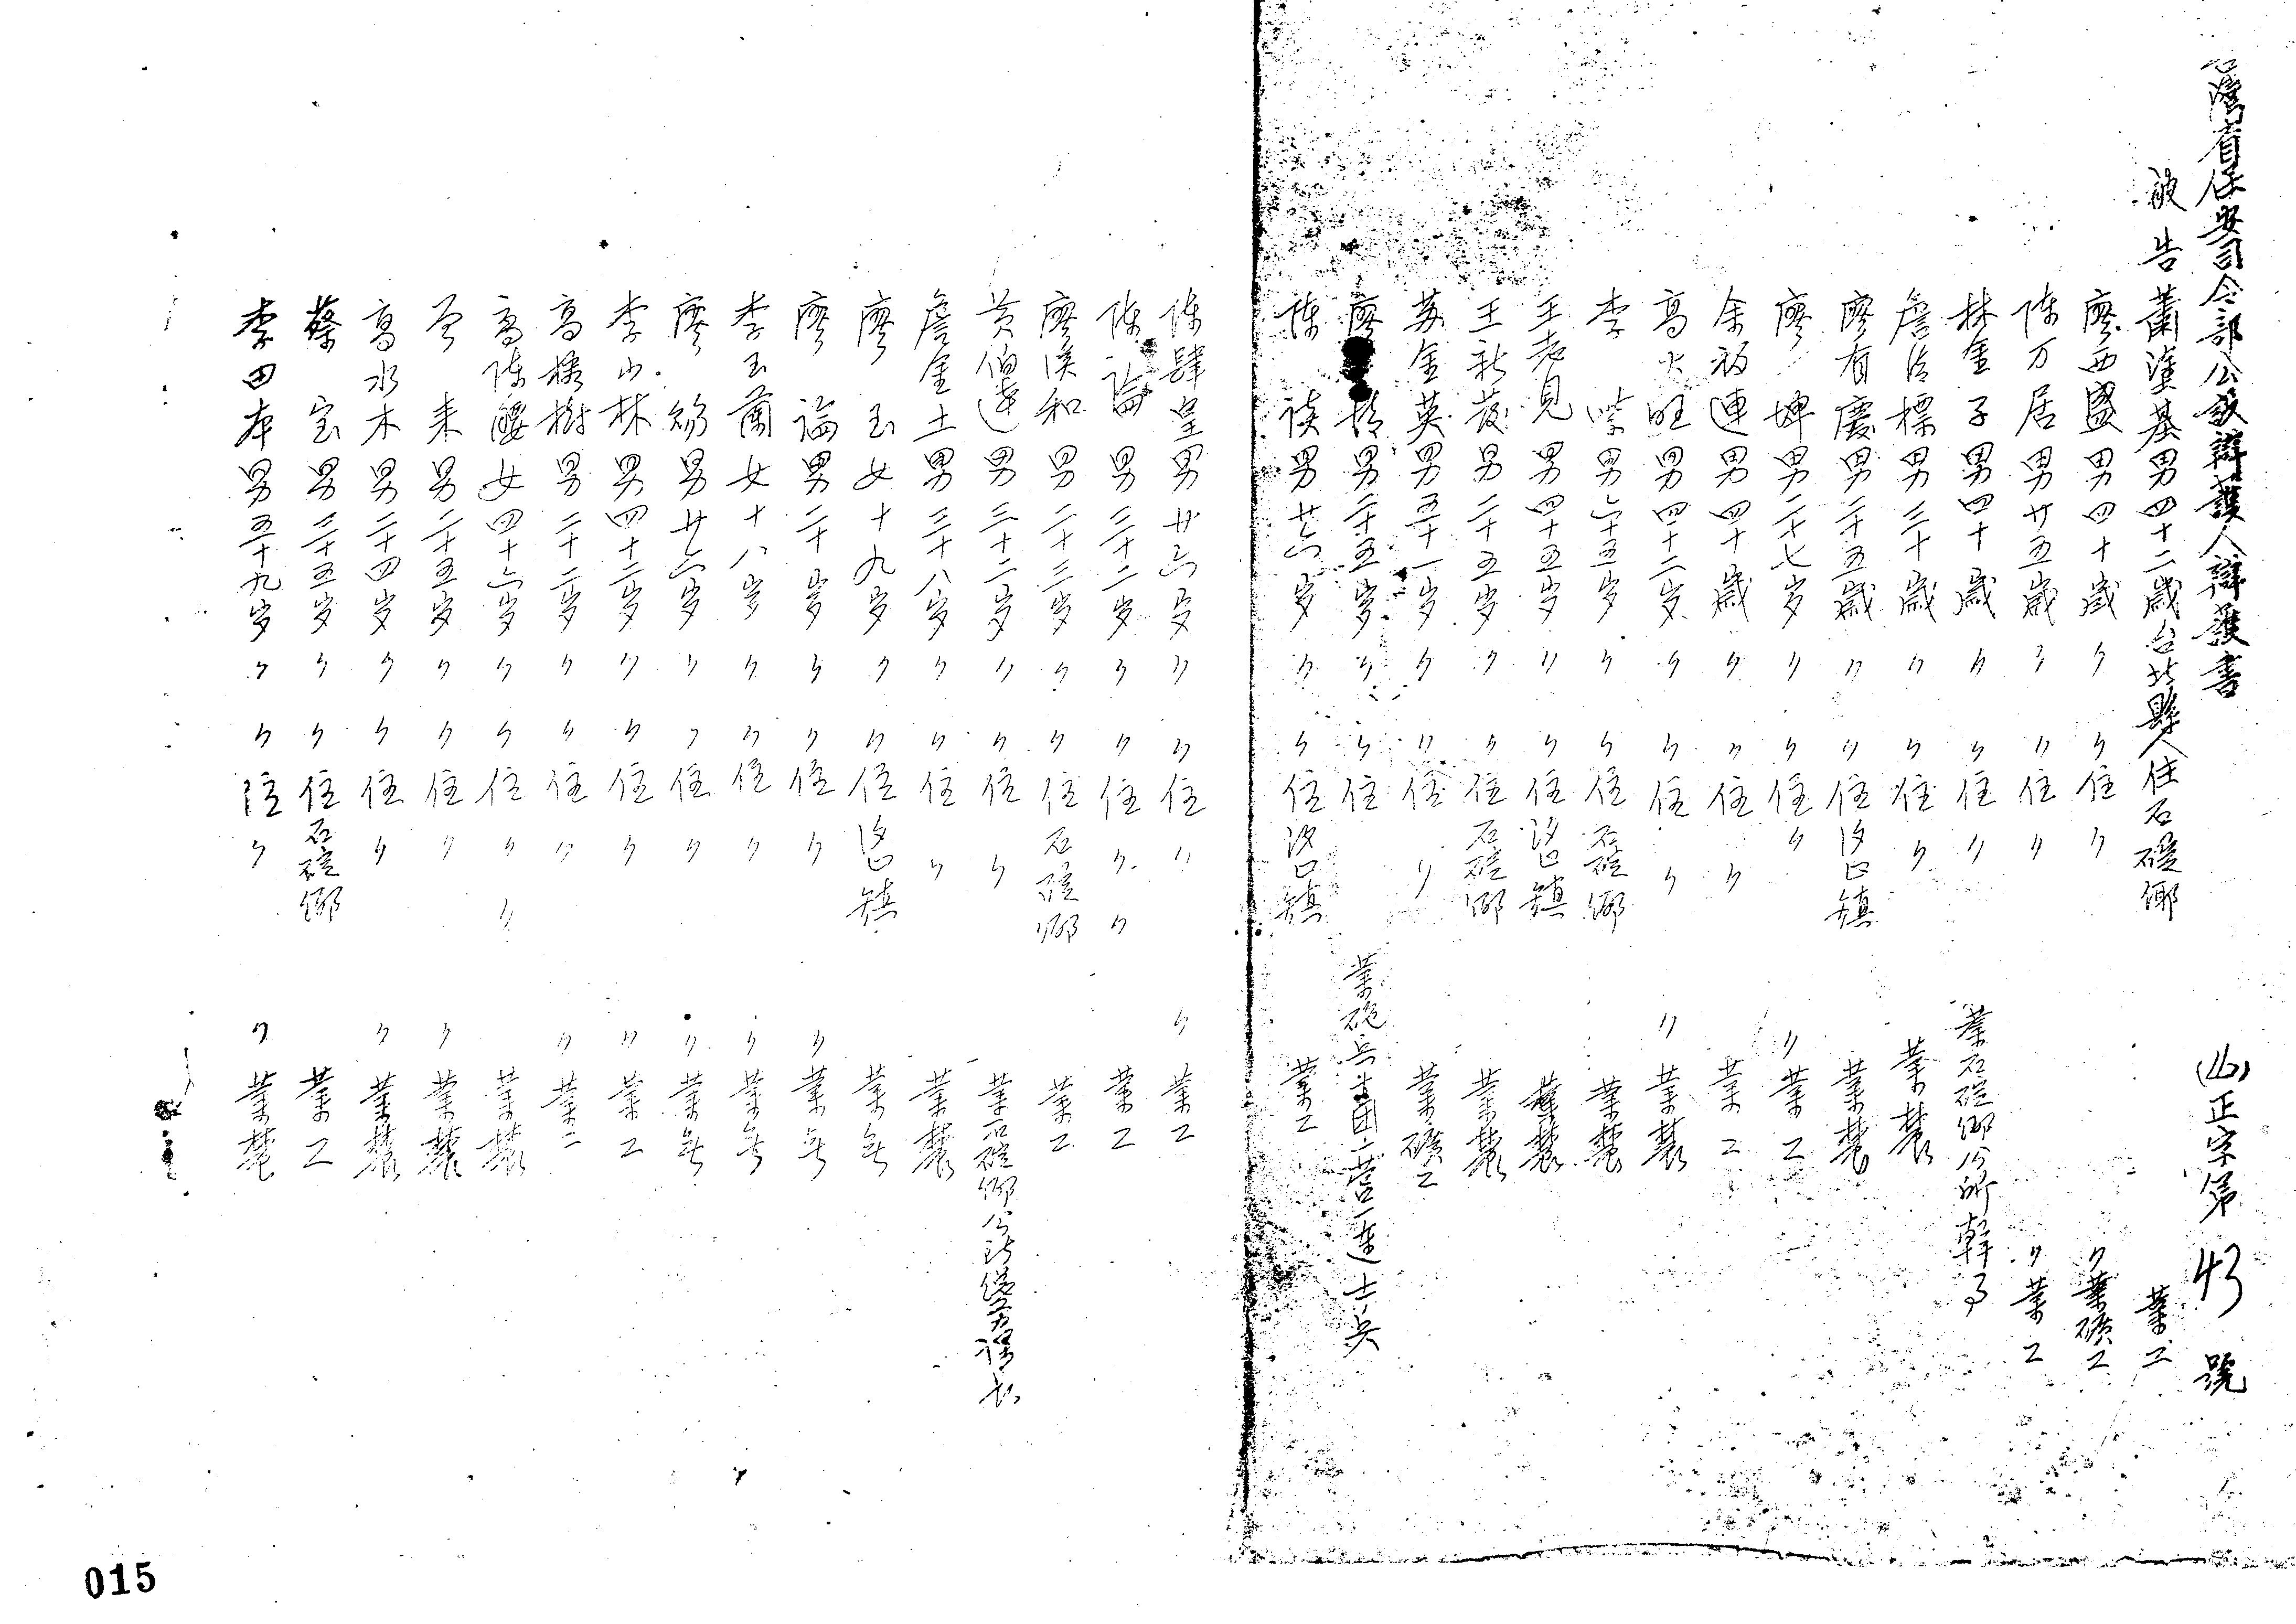 台灣省保安司令部公設辯護人辯護書 (42)正字第 43 號
被告 蕭漢基 男 四十二歲 台北縣人 住石碇鄉 業工
廖西盛 男 四十歲 〃 〃 住 〃 〃 業礦工
陳万居 男 廿五歲 〃 〃 住 〃 〃 業工
林金子 男 四十歲 〃 〃 住 〃 業石碇鄉公所幹事
詹清標 男 三十歲 〃 〃 住 〃 業農
廖有慶 男 二十五歲 〃 〃 住汐止鎮 業農
廖 婢 男 二十七岁 〃 〃 住 〃 〃 業工
余福連 男 四十歲 〃 〃 住 〃 業工
高火旺 男 四十二岁 〃 〃 住 〃 〃 業農
李 男 六十五岁 〃 〃 住石碇鄉 業農
王老見 男 四十五岁 〃 〃 住汐止鎮 業農
王新發 男 二十五岁 〃 〃 住石碇鄉 業農
苏金英 男 五十一岁 〃 〃 住 〃 業礦工
廖 男 二十五岁 〃 〃 住 業砲兵 團二營一連士兵
陳 男 廿六岁 〃 〃 住汐止鎮 業工
陳肆皇 男 廿六岁 〃 〃 住 〃 〃 業工
陳論 男 三十二岁 〃 〃 住 〃 〃 業工
廖溪和 男 二十三岁 〃 〃 住石碇鄉 業工
黃伯達 男 三十二岁 〃 〃 住 〃 業石碇鄉公所 課長
詹金土 男 三十八岁 〃 〃 住 〃 業農
廖 玉 女 十九岁 〃 〃 住汐止鎮 業無
廖 論 男 二十岁 〃 〃 住 〃 〃 業無
李玉蘭 女 十八岁 〃 〃 住 〃 〃 業無
廖 男 廿六岁 〃 〃 住 〃 〃 業無
李小林 男 四十二岁 〃 〃 住 〃 〃 業工
高樹 男 二十二岁 〃 〃 住 〃 〃 業工
高陳腰 女 四十六岁 〃 〃 住 〃 〃 業農
來 男 二十五岁 〃 〃 住 〃 〃 業農
高水木 男 二十四岁 〃 〃 住 〃 〃 業農
蔡 宝 男 三十五岁 〃 〃 住石碇鄉 業工
李田本 男 五十九岁 〃 〃 住 〃 〃 業農
015